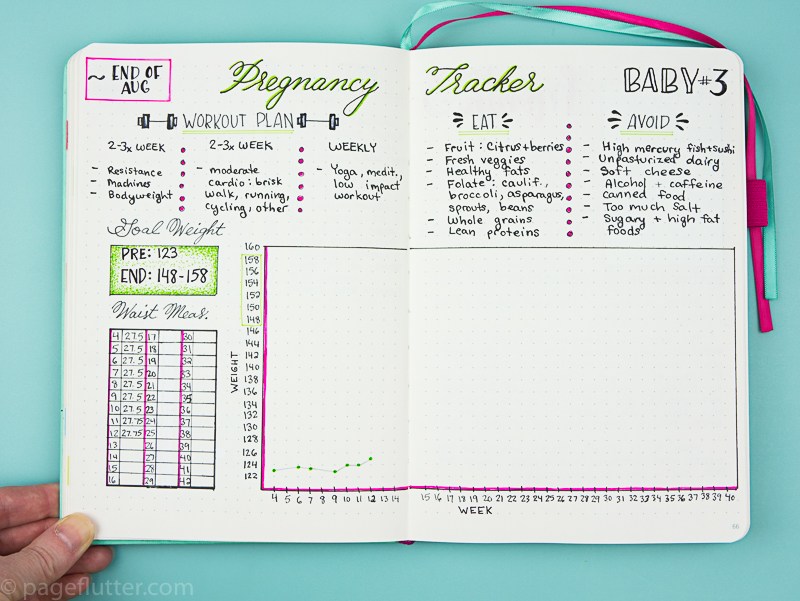 ~ END OF
AUG
Pregnancy Tracker
BABY #3
WORKOUT PLAN
2-3x WEEK
- Resistance
- Machines
- Bodyweight
2-3x WEEK
- moderate
cardio: brisk
walk, running,
cycling, other
WEEKLY
- Yoga, medit.,
low impact
workout
EAT
- Fruit: Citrus+berries
- Fresh veggies
- Healthy fats
- Folate: caulif.,
broccoli, asparagus,
sprouts, beans
- Whole grains
- Lean proteins
AVOID
- High mercury fish+sushi
- Unpasturized dairy
- Soft cheese
- Alcohol + caffeine
- canned food
- Too much salt
- Sugary + high fat
foods
Goal Weight
PRE: 123
END: 148-158
Waist Meas.
4 27.5 17 30
5 27.5 18 31
6 27.5 19 32
7 27.5 20 33
8 27.5 21 34
9 27.5 22 35
10 27.5 23 36
11 27.75 24 37
12 27.75 25 38
13 26 39
14 27 40
15 28 41
16 29 42
WEIGHT
160
158
156
154
152
150
148
146
144
142
140
138
136
134
132
130
128
126
124
122
4 5 6 7 8 9 10 11 12 13 14 15 16 17 18 19 20 21 22 23 24 25 26 27 28 29 30 31 32 33 34 35 36 37 38 39 40
WEEK
© pageflutter.com